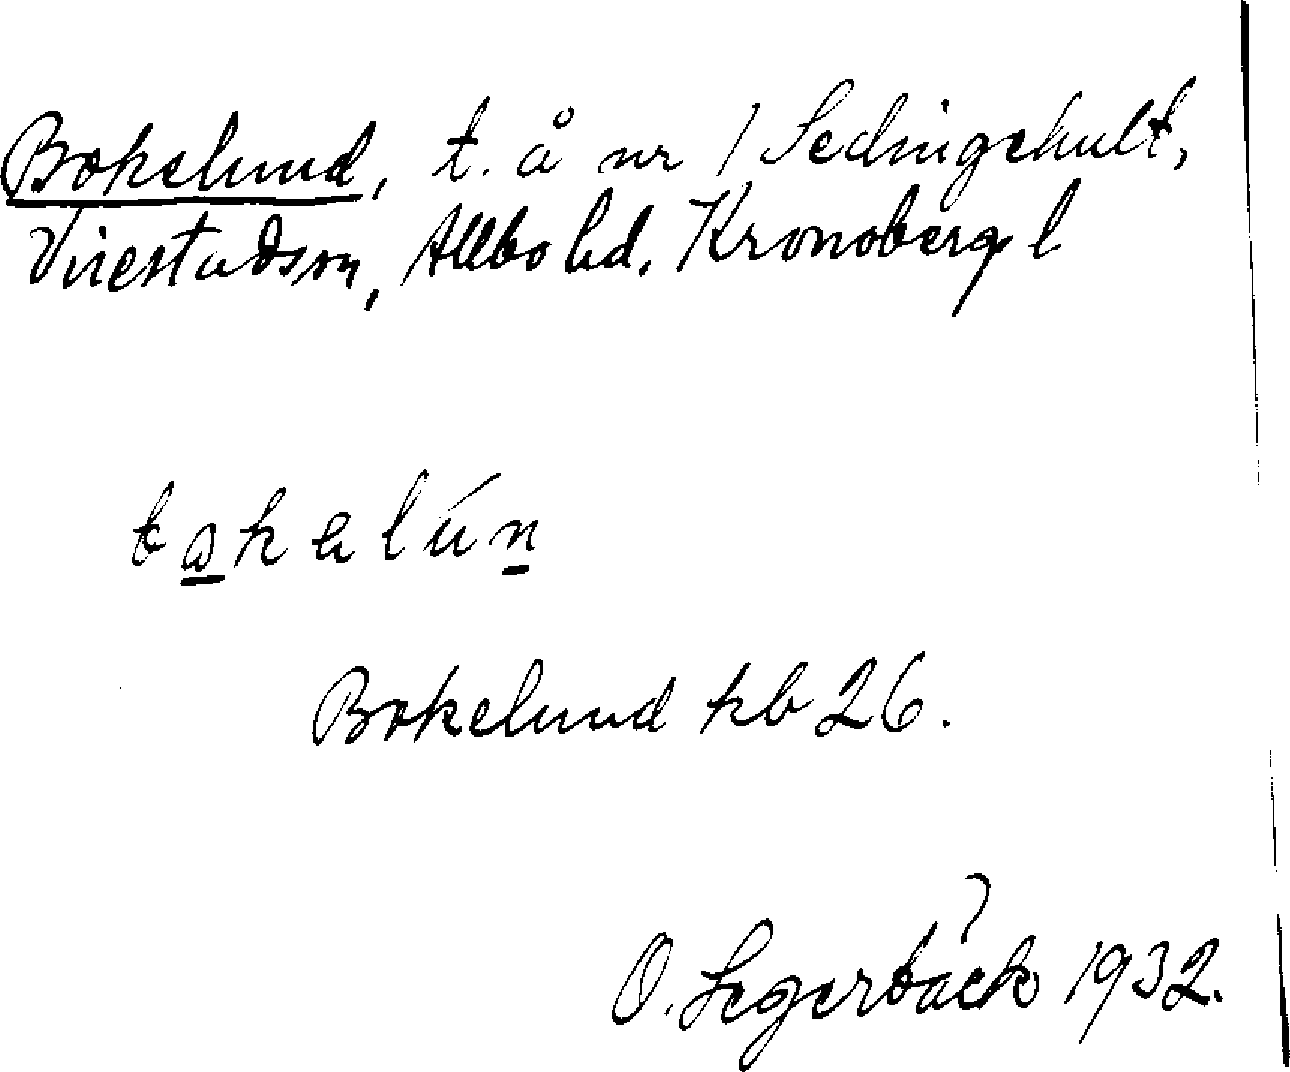 Bokelund, t. å nr 1 Sedingehult,
Virestads sn, Allbo hd, Kronobergs l
Bokelund kb 26.
O. Segerbäck 1932.